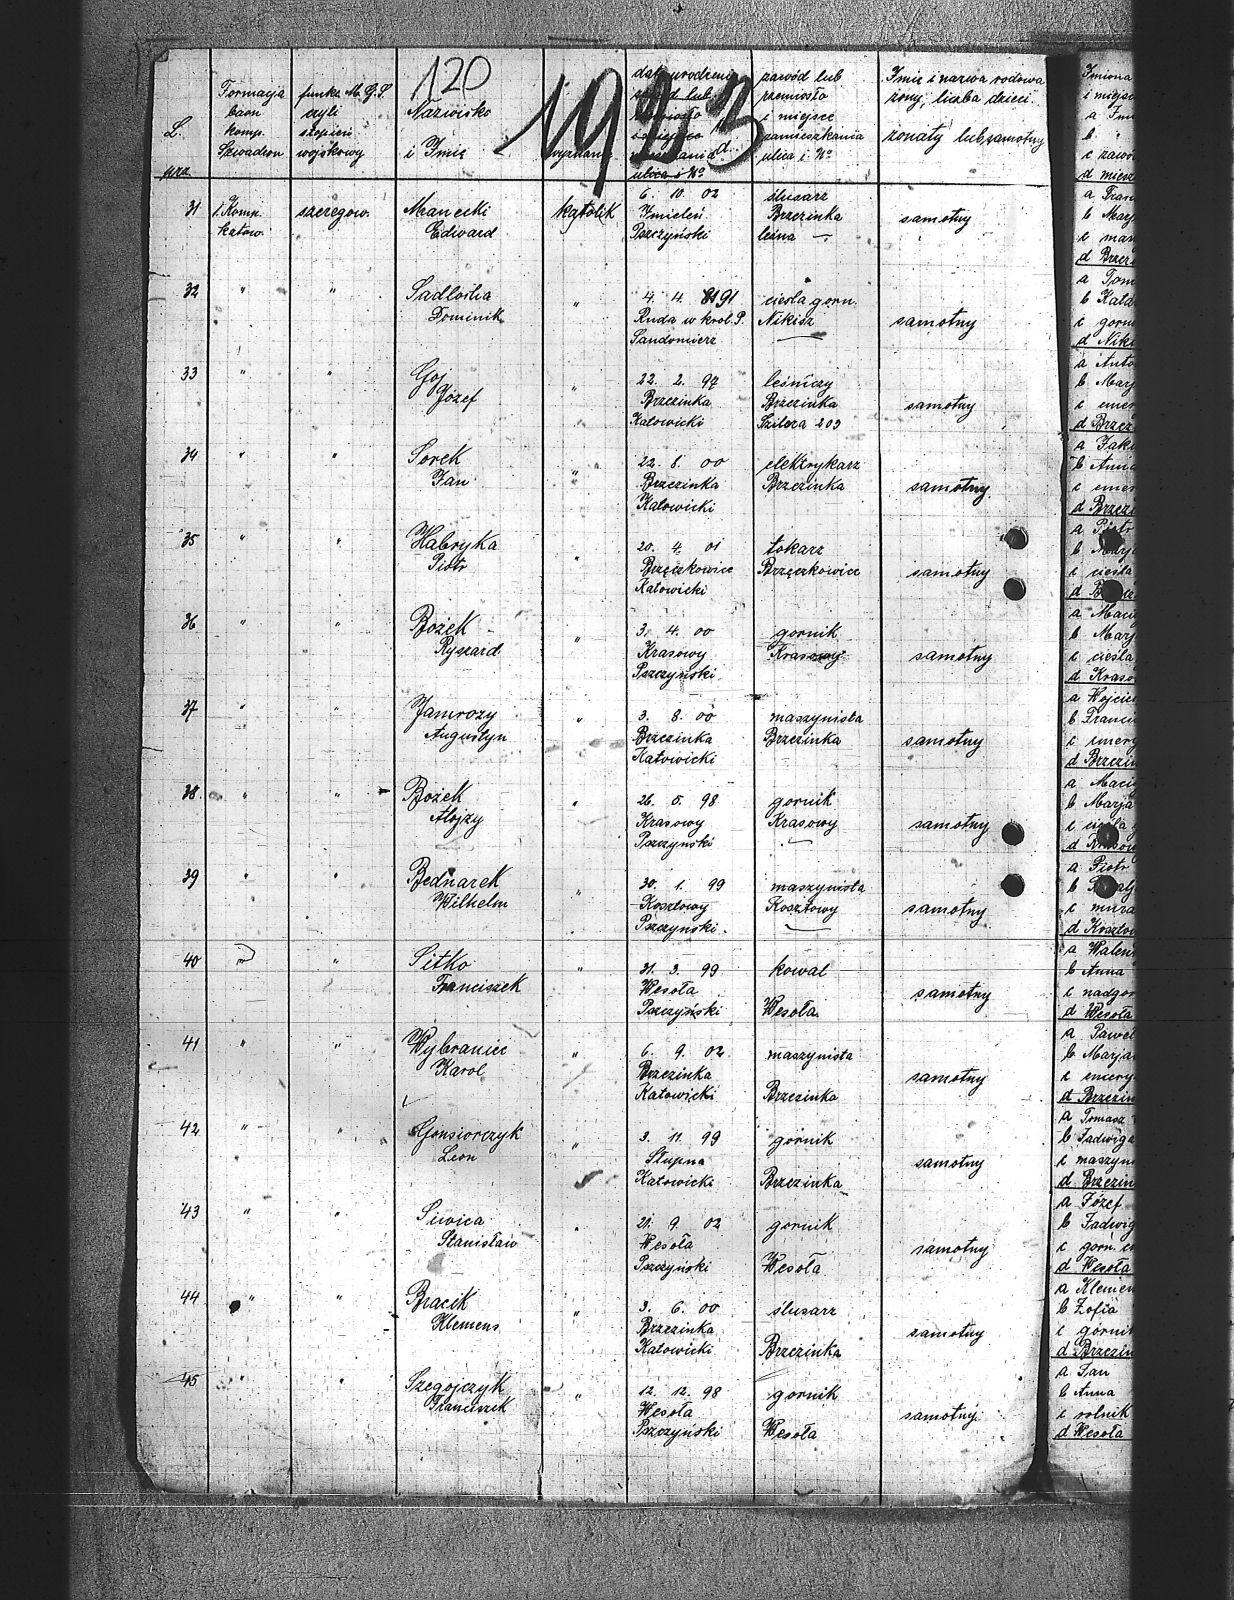 120
1923
L. prz
Formacja baon komp. Szwadron
funkc. M.G.S. czyli stopień wojskowy
Nazwisko i Imię
wyznanie
data urodzenia
ulica i No
zawód lub rzemiosło i miejsce zamieszkania ulica i No
Imię i nazwa rodowa żony, liczba dzieci
żonaty lub samotny
31 1. Komp. szeregow. Manecki katolik 6. 10. 02 ślusarz
katow. Edward Imieleń Brzezinka samotny
Pszczyński leśna —
32 " " Sadłocha " 4. 4. 91 cieśla gorn.
Dominik Ruda w krol. P. Nikisz samotny
Sandomierz
33 " " Goj " 22. 2. 97 leśniczy
Józef Brzezinka Brzezinka samotny
Katowicki Szilera 203
34 " " Sorek " 22. 8. 00 elektrykarz
Jan Brzezinka Brzezinka samotny
Katowicki
35 " " Habryka " 20. 4. 01 tokarz
Piotr Brzęczkowice Brzęczkowice samotny
Katowicki
36 " " Bożek " 3. 4. 00 gornik
Ryszard Krasowy Krasowy samotny
Pszczyński
37 " " Jamrozy " 3. 8. 00 maszynista
Augustyn Brzezinka Brzezinka samotny
Katowicki
38. " " Bożek " 26. 5. 98 gornik
Alojzy Krasowy Krasowy samotny
Pszczyński
39 " " Bednarek " 30. 1. 99 maszynista
Wilhelm Kosztowy Kosztowy samotny
Pszczyński.
40 " " Sitko " 31. 3. 99 kowal
Franciszek Wesoła samotny
Pszczyński Wesoła
41 " " Wybraniec " 6. 9. 02 maszynista
Karol Brzezinka samotny
Katowicki Brzezinka
42 " " Gonsiorczyk " 3. 11. 99 górnik
Leon Słupna samotny
Katowicki Brzezinka
43 " " Siwica " 21. 9. 02 gornik
Stanisław Wesoła samotny
Pszczyński Wesoła
44 " " Bracik " 3. 6. 00 ślusarz
Klemens Brzezinka samotny
Katowicki Brzezinka
45 " " Szegojczyk " 12. 12. 98 gornik
Franciszek Wesoła samotny
Pszczyński Wesoła
Imiona
i miejsc
a Fran
b Mary
c mas
d Brzez
a Tom
c gorni
d Niki
a Anto
b Mary
c emer
d Brzez
a Jak
b Anna
c emer
d Brzezi
a Piotr
b Marja
c cieśla
a Maci
b Mary
c cieśla
d Kraso
a Wojcie
b Franci
c emery
d Brzezin
a Maci
b Marja
c cieśla
a Piotr
c mura
d Kosztow
a Walen
b Anna
c nadgor
d Wesoła
a Paweł
b Marja
c emery
d Brzezin
a Tomasz
b Jadwiga
c maszyn
d Brzezin
a Józef
b Jadwig
c gorn. e
d Wesoła
a Klemen
b Zofia
c górnik
d Brzezin
a Jan
b Anna
c rolnik
d Wesoła